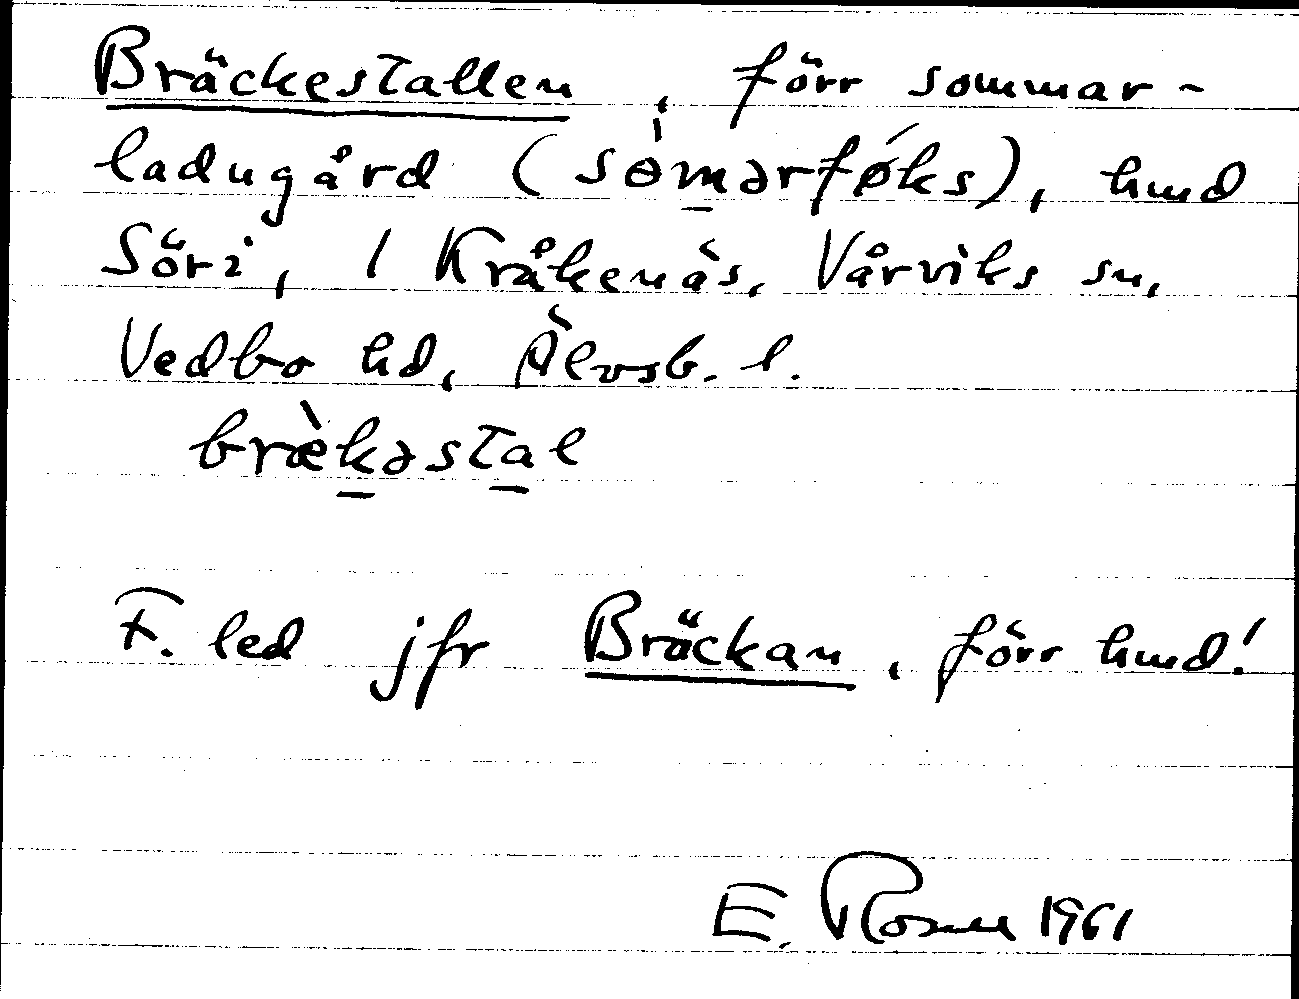 Bräckestallen, förr sommar-
ladugård (sòmərføks), hmd
Sör i, 1 Kråkenäs, Vårviks sn,
Vedbo hd, Älvsb. l.
brækəstal
F. led jfr Bräckan, förr hmd!
E. Rosell 1961